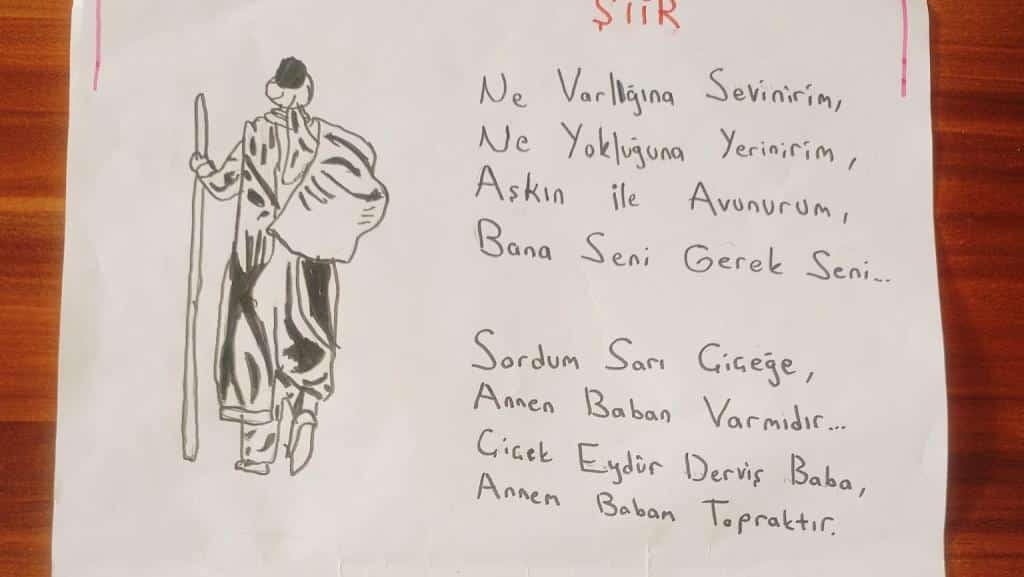 ŞİİR
Ne Varlığına Sevinirim,
Ne Yokluğuna Yerinirim,
Aşkın ile Avunurum,
Bana Seni Gerek Seni...
Sordum Sarı Çiçeğe,
Annen Baban Varmıdır...
Çiçek Eydür Derviş Baba,
Annem Babam Topraktır.